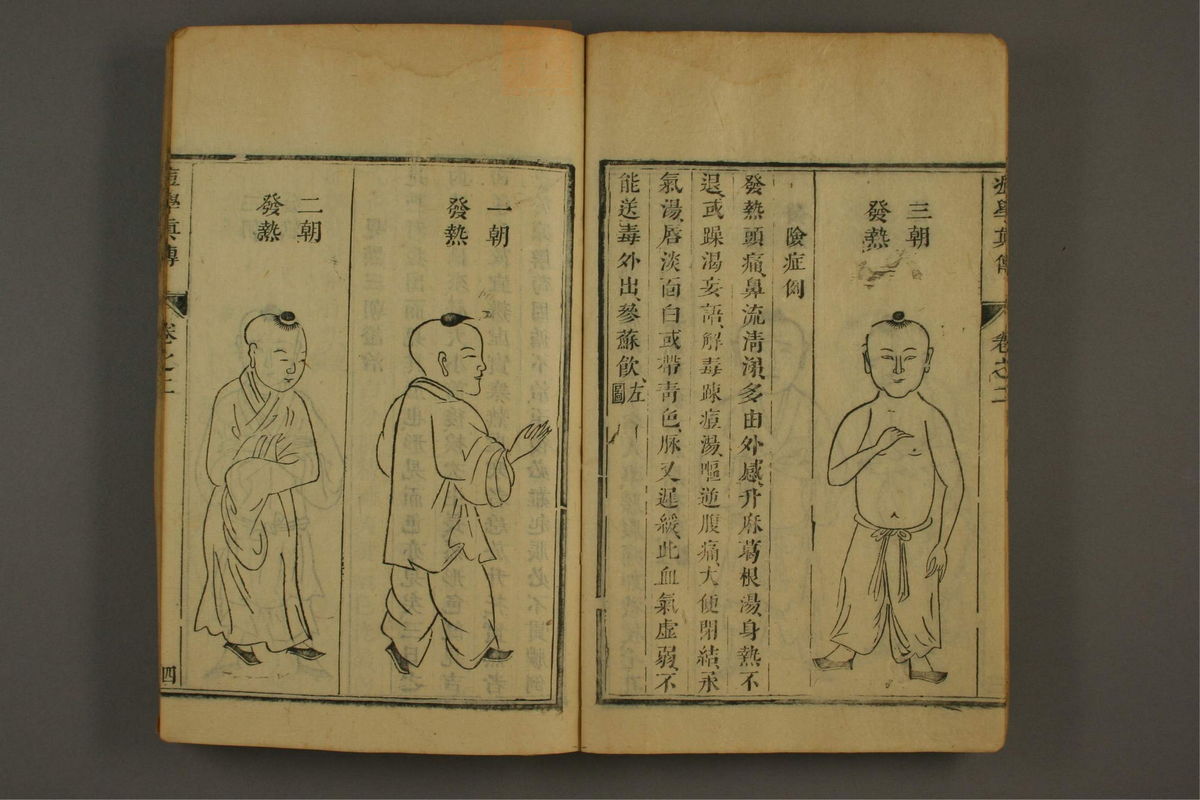 痘學眞傳 卷之二
三朝
發熱
險症図
發熱頭痛、鼻流淸涕、多由外感、升麻葛根湯、身熱不
退、或躁渴妄語、解毒踈痘湯、嘔逆腹痛、大便閉結、承
氣湯、唇淡面白或帶靑色、脉又遲緩、此血氣虛弱、不
能送毒外出、參蘇飲、左圖
一朝
發熱
二朝
發熱
痘學眞傳 卷之二 四